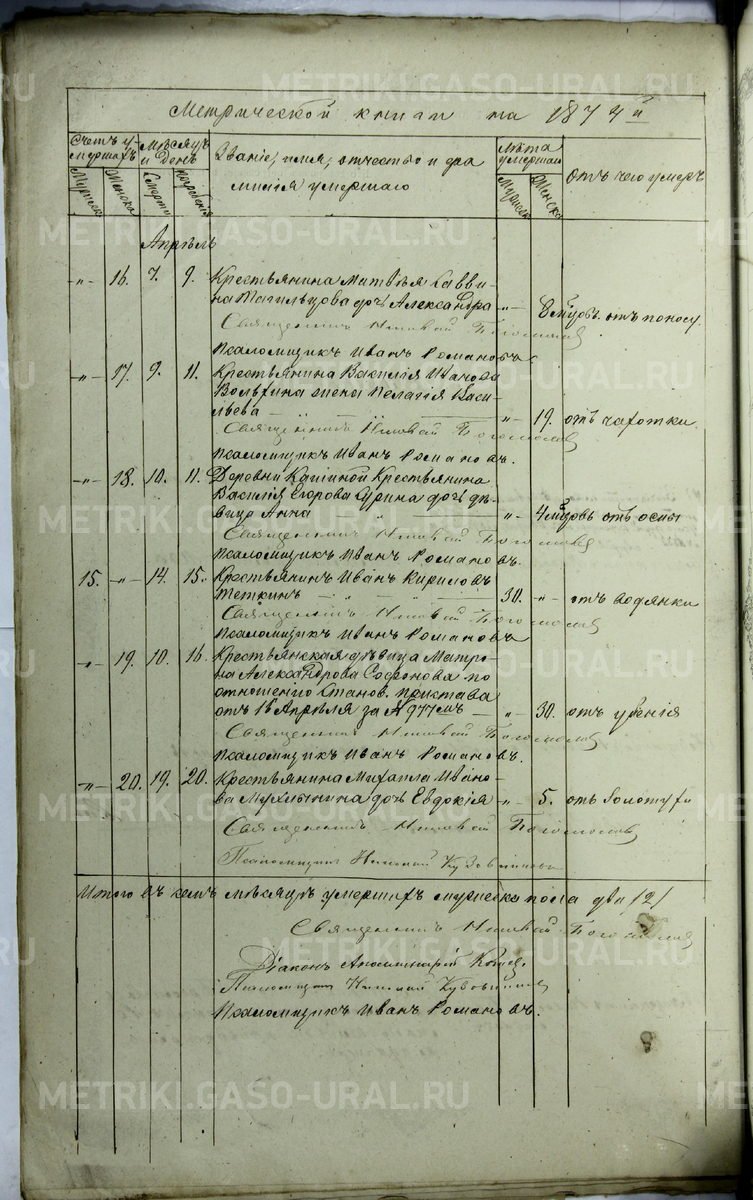 METRIKI.GASO-URAL.RU
Метрической книги на 1874й
Счетъ умершихъ
Мѣсяцъ и День
Званіе, имя, отчество и фамилія умершаго
Лѣта умершаго
Отъ чего умеръ
Мужеска
Женска
Смерти
Погребенія
Мужеска
Женска
Апрѣль
-"- 16. 7. 9. Крестьянина Матвѣя Савви-
на Тагильцова дочь Александра -"- 8 мѣцовъ. отъ поносу.
Священникъ Николай Богомолов
Псаломщикъ Иванъ Романовъ
-"- 17. 9. 11. Крестьянина Василія Иванова
жена Пелагія Васи-
льева -"- 19. отъ чахотки.
Священникъ Николай Богомолов
Псаломщикъ Иванъ Романовъ.
-"- 18. 10. 11. Деревни Крестьянина
Василія Егорова Сурина дочь дѣ-
вица Анна " -"- 4 мѣцовъ отъ оспы
Священникъ Николай Богомолов
Псаломщикъ Иванъ Романовъ.
15. -"- 14. 15. Крестьянинъ Иванъ Кириловъ
Теткинъ 30. -"- отъ водянки
Священникъ Николай Богомолов
Псаломщикъ Иванъ Романовъ
-"- 19. 10. 16. Крестьянская дѣвица Матро-
на Александрова Софонова по
отношенію Станов. пристава
отъ 16 Апрѣля за № 977емъ -"- 30. отъ убенія
Священникъ Николай Богомолов
Псаломщикъ Иванъ Романовъ.
-"- 20. 19. 20. Крестьянина Михаила Ивано-
ва Мухлынина дочь Евдокія -"- 5. отъ золотухи
Священникъ Николай Богомолов
Псаломщикъ Николай
Итого въ семъ мѣсяцѣ умершихъ мужеска пола два /2/
Священникъ Николай Богомолов
Діаконъ
Псаломщикъ Николай
Псаломщикъ Иванъ Романовъ.